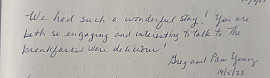 We had such a wonderful stay! You are
both so engaging and interesting to talk to. The
breakfasts were delicious!
Greg and Pam Young
14/5/23